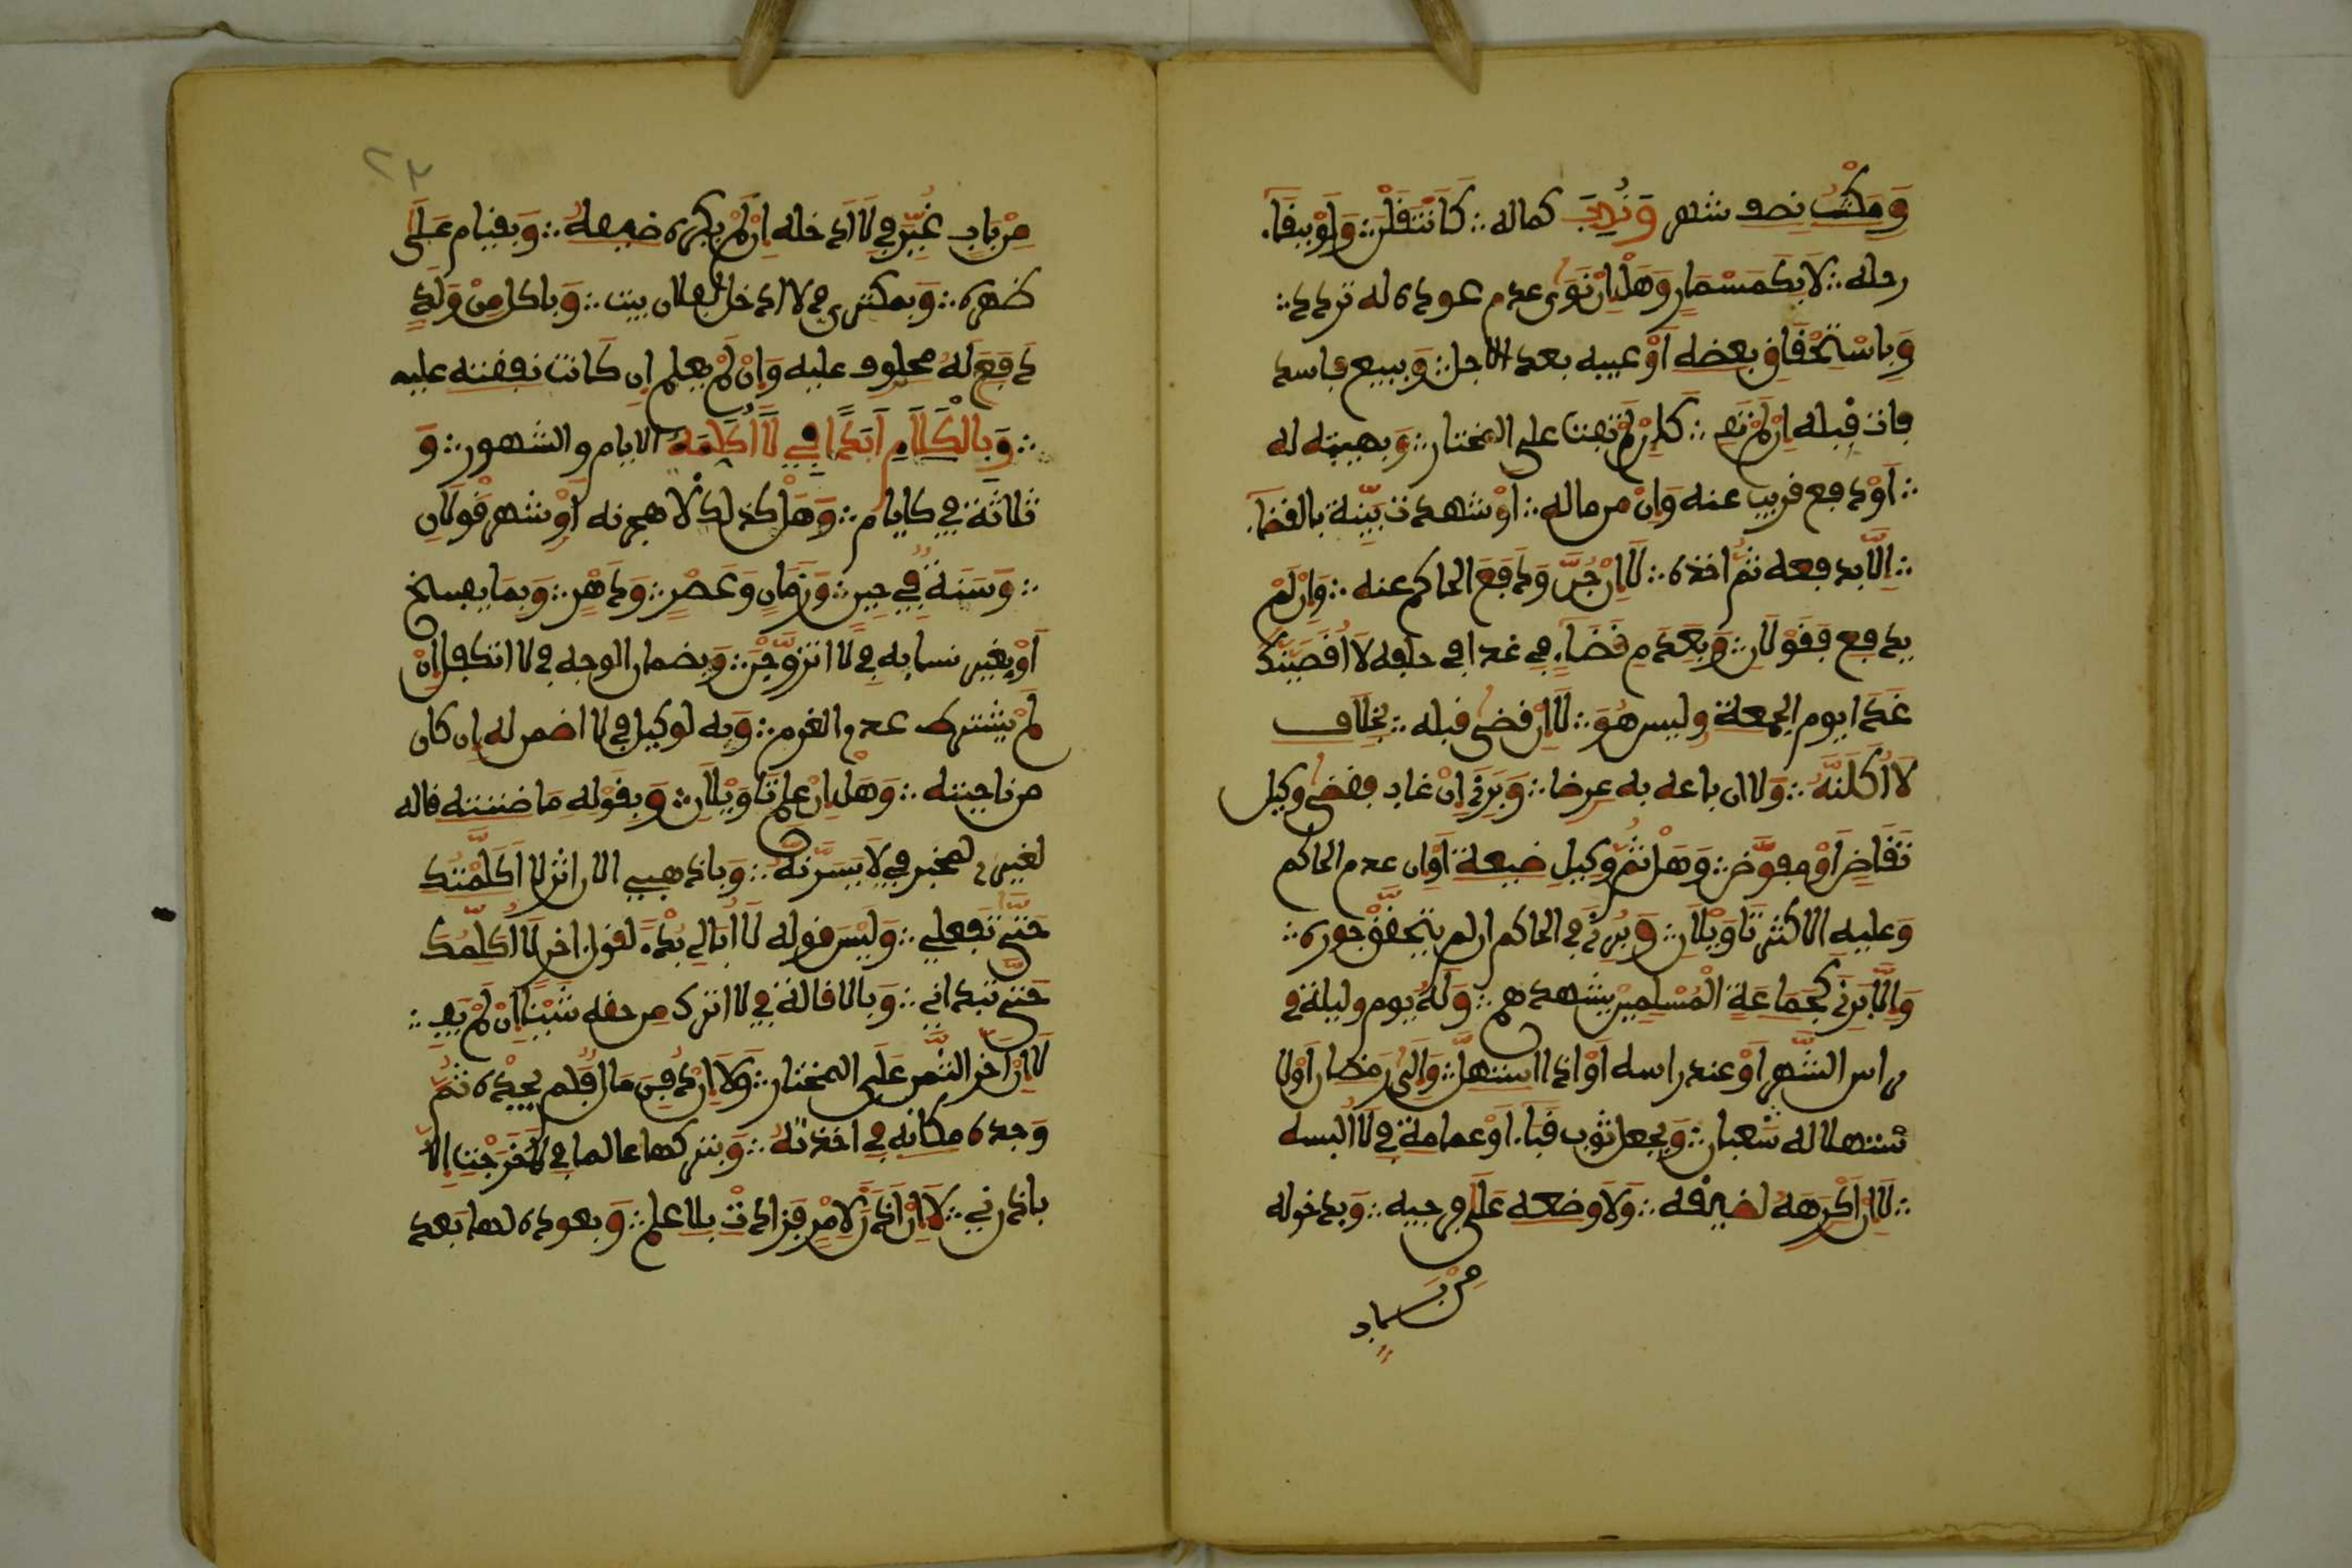 وَمَكْثُ نصف شهر وَنُدِبَ كماله ∴ كَأَنْتَقِلَنَّ ∴ وَلَوْ بِبَقَاء
رحله ∴ لَا بِكَمَسْمَارٍ وَهَلْ إِنْ نَوَى عدم عوده له تردد ∴
وَبِاسْتِحْقَاقِ بعضه أَوْ عيبه بعد الاجل ∴ وَببيع فاسد
فات قبله إِنْ لَمْ تَفِ ∴ كَإِنْ لَمْ تفت على المختار ∴ وَبهبته له
∴ أَوْ دفع قريب عنه وَإِنْ من ماله ∴ أَوْ شهدت بَيِّنَة بالقضاء
∴ إِلَّا بدفعه ثُمَّ اخذه ∴ لَا إِنْ جُنَّ وَدَفَعَ الحاكم عنه ∴ وَإِنْ لَمْ
يدفع فَقَوْلَانِ ∴ وَبِعَدَمِ قَضَاءٍ في غد في حلفه لَأَقْضِيَنَّكَ
غَدًا يوم الجمعة وليس هُوَ ∴ لَا إِنْ قضى قبله ∴ بِخِلَافِ
لَآكُلَنَّهُ ∴ وَلا ان باعه به عرضا ∴ وَبَرَّ إِنْ غاب بقضى وكيل
تَقَاضٍ أَوْ مفوَّض ∴ وَهَلْ ثُمَّ وكيلِ ضيعة أَوْ ان عدم الحاكم
وَعليه الاكثر تَأْوِيلَانِ ∴ وَبَرِئَ في الحاكم ان لم يتحقّقْ جوره ∴
وَإِلَّا بَرَّ كَجَمَاعَةِ الْمُسْلِمِينَ يشهدهم ∴ وَلَهُ يوم وليلة في
راس الشَّهر أَوْ عند راسه أَوْ اذا استهلَّ ∴ وَإِلَى رَمضان أَوْ لا
ستهلاله شعبان ∴ وَبجعل ثوب قبَاء أَوْ عمامة في لَا البسه
∴ لَا إِنْ كَرِهَهُ لضيقه ∴ وَلَا وضعه عَلَى فرجه ∴ وَبدخوله
مِنْ بَاب
٢٣
مِنْ بَابٍ غُيِّرَ فِي لَا أَدخله إِنْ لَمْ يكره ضيقهُ ∴ وَبقيام عَلَى
ظهره ∴ وَبمكترى في لا ادخل لفلان بيت ∴ وَباكل مِنْ وَلَدٍ
دَفَعَ لَهُ محلوف عليه وَإِنْ لَمْ يعلم إن كَانت نفقته عليه
∴ وَبِالْكَلَامِ أَبَدًا فِي لَا أُكَلِّمَهُ الايام والشهور ∴ وَ
ثلاثة في كايام ∴ وَهَلْ كذلك لأهجرنه أَوْ شهر قَوْلَانِ
∴ وَسَنَةٌ فِي حِينٍ ∴ وَزَمَانٍ وَعَصْرٍ ∴ وَدَهْرٍ ∴ وَبِمَا يفسخ
أَوْ بِغَيْرِ نسايه في لَا اتزوَّجَنَّ ∴ وَبضمان الوجه في لا اتكفل إِنْ
لَمْ يشترط عدم الغرم ∴ وَبه لوكيل في لا اضمن له إن كان
من ناحيته ∴ وَهَلْ إِنْ علم تَأْوِيلَانِ ∴ وَبِقَوْلِهِ مَا ظننته قاله
لغيري لمخبر فِي لَيُسِرَّنَّهُ ∴ وَباذهبي الان اثر لَا أُكَلِّمُكِ
حَتَّى تَفعلي ∴ وَلَيْسَ قوله لَا أُبَالِي بَدْءً لقول اخر لَا أُكَلِّمُكَ
حَتَّى تبداني ∴ وَبالاقالة في لا اترك من حقه شَيْئًا إِنْ لَمْ تَفِ ∴
لَا إِنْ أَخَّرَ الثَّمن عَلَى المختار ∴ وَلَا إِنْ دفن مَالا فَلم يجدْه ثُمَّ
وَجده مكانه في اخذتهُ ∴ وَبتركها عالما في لَا خَرَجْتِ إلَّا
باذني ∴ لَا إِنْ أَذِنَ لِأَمْرٍ فَزادت بلا علم ∴ وَبعوده لها بَعد